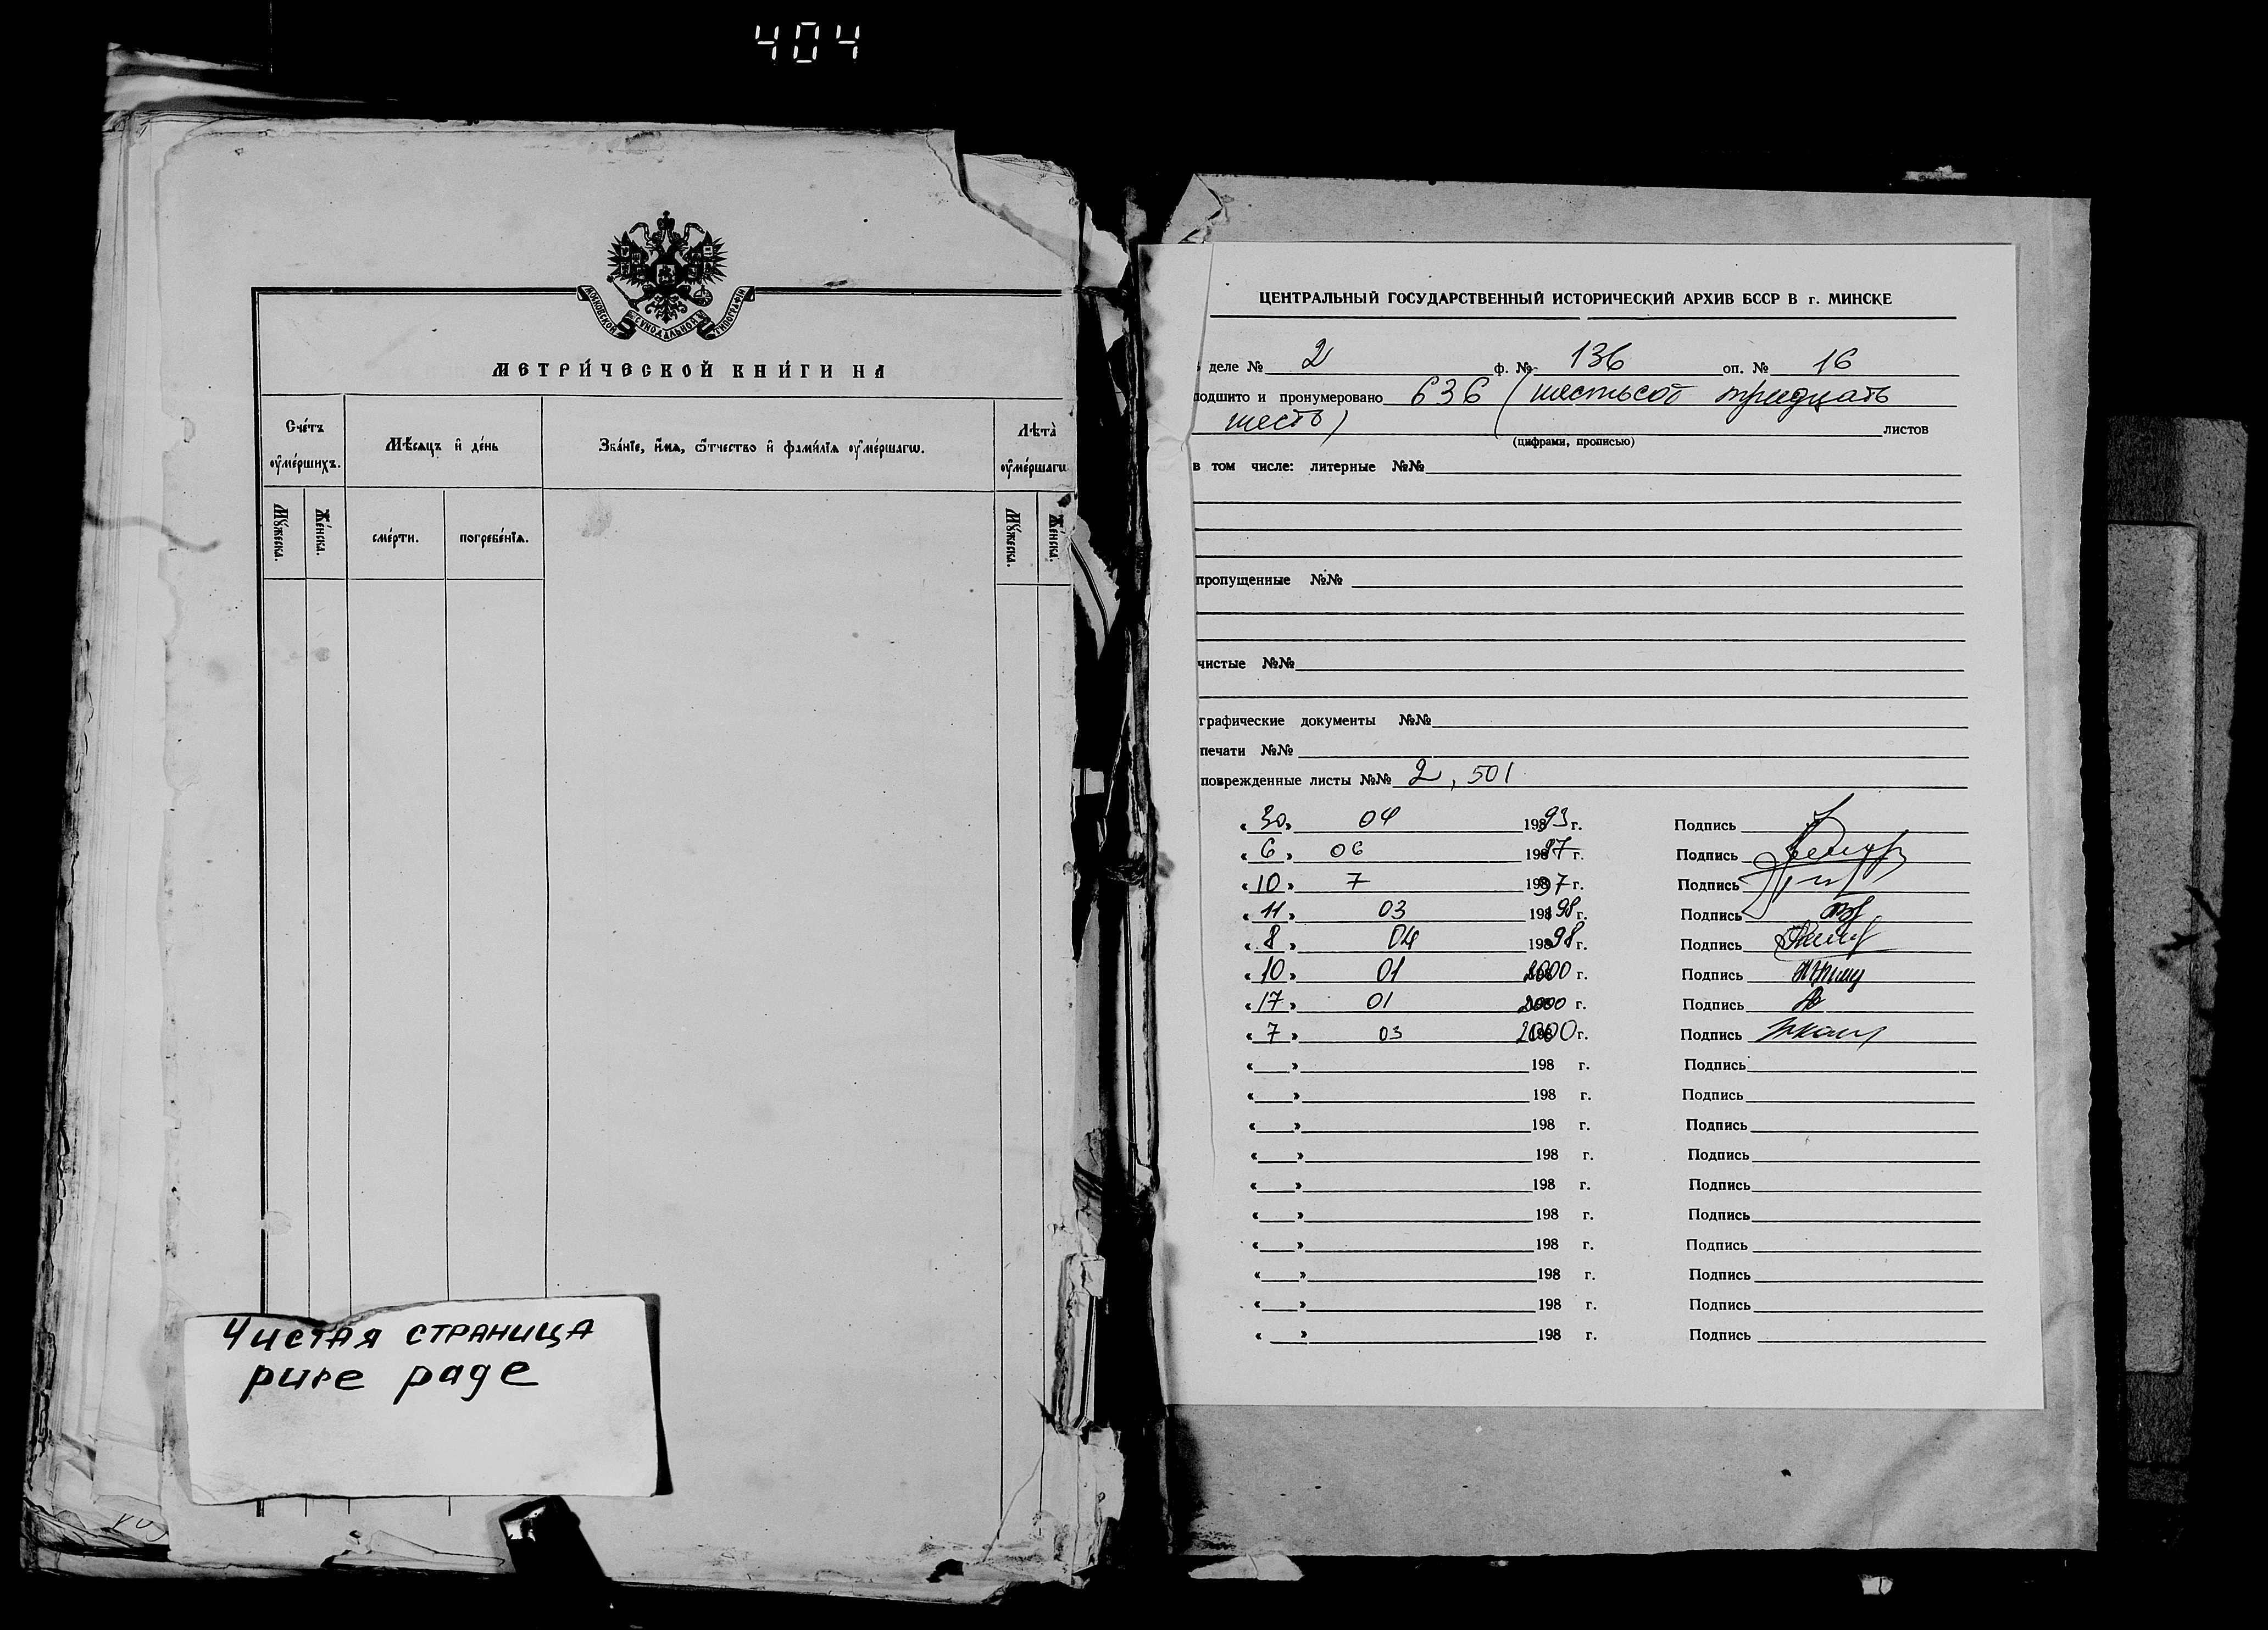 404
МОСКОВСКОЙ СУНОДАЛЬНОЙ ТИПОГРАФІИ
МЕТРИ́ЧЕСКОЙ КНИ́ГИ НА
Сче́тъ ᲂу҆ме́ршихъ.
Мѣ́сяцъ и҆ де́нь
Зва́нїе, и҆́мя, ѻ҆́тчество и҆ фами́лїя ᲂу҆ме́ршагѡ.
Лѣта̀ ᲂу҆ме́ршагѡ
Мꙋ́жеска.
Же́нска.
сме́рти.
погребе́нїя.
Мꙋ́жеска.
Же́нска.
Чистая страница
pure page
ЦЕНТРАЛЬНЫЙ ГОСУДАРСТВЕННЫЙ ИСТОРИЧЕСКИЙ АРХИВ БССР В г. МИНСКЕ
деле № 2 ф. № 136 оп. № 16
подшито и пронумеровано 636 (шестьсот тридцать
шесть) листов
(цифрами, прописью)
в том числе: литерные №№
пропущенные №№
чистые №№
графические документы №№
печати №№
поврежденные листы №№ 2, 501
«30» 04 19893 г. Подпись
«6» 06 19897 г. Подпись
«10» 7 1997 г. Подпись
«11» 03 19898 г. Подпись
«8» 04 19898 г. Подпись
«10» 01 2000 г. Подпись
«17» 01 2000 г. Подпись
«7» 03 2000 г. Подпись
« » 198 г. Подпись
« » 198 г. Подпись
« » 198 г. Подпись
« » 198 г. Подпись
« » 198 г. Подпись
« » 198 г. Подпись
« » 198 г. Подпись
« » 198 г. Подпись
« » 198 г. Подпись
« » 198 г. Подпись